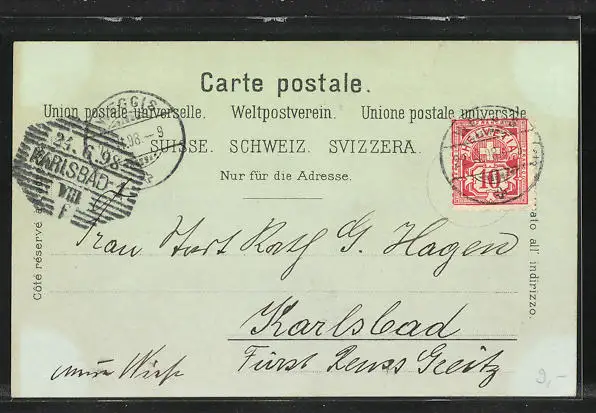 Carte postale.
Union postale universelle. Weltpostverein. Unione postale universale
SUISSE. SCHWEIZ. SVIZZERA.
Nur für die Adresse.
WEGGIS
98-9
24.6.98
KARLSBAD-1
VIII
F
HELVETIA
10
Côté réservé à
rato all' indirizzo.
Frau Hort Rath G. Hagen
Karlsbad
Fürst Reuss Greitz
9,-